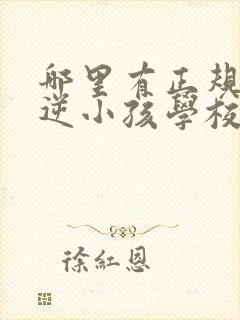 哪里有正規
逆小孩學校
徐紅恩